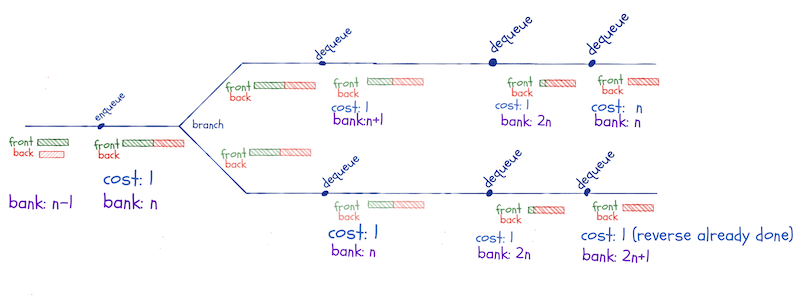 enqueue
front
back
bank: n-1
front
back
cost: 1
bank: n
branch
dequeue
front
back
front
back
cost: 1
bank:n+1
dequeue
front
back
cost: 1
bank: 2n
dequeue
front
back
cost: n
bank: n
front
back
dequeue
front
back
cost: 1
bank: n
dequeue
front
back
cost: 1
bank: 2n
dequeue
front
back
cost: 1 (reverse already done)
bank: 2n+1